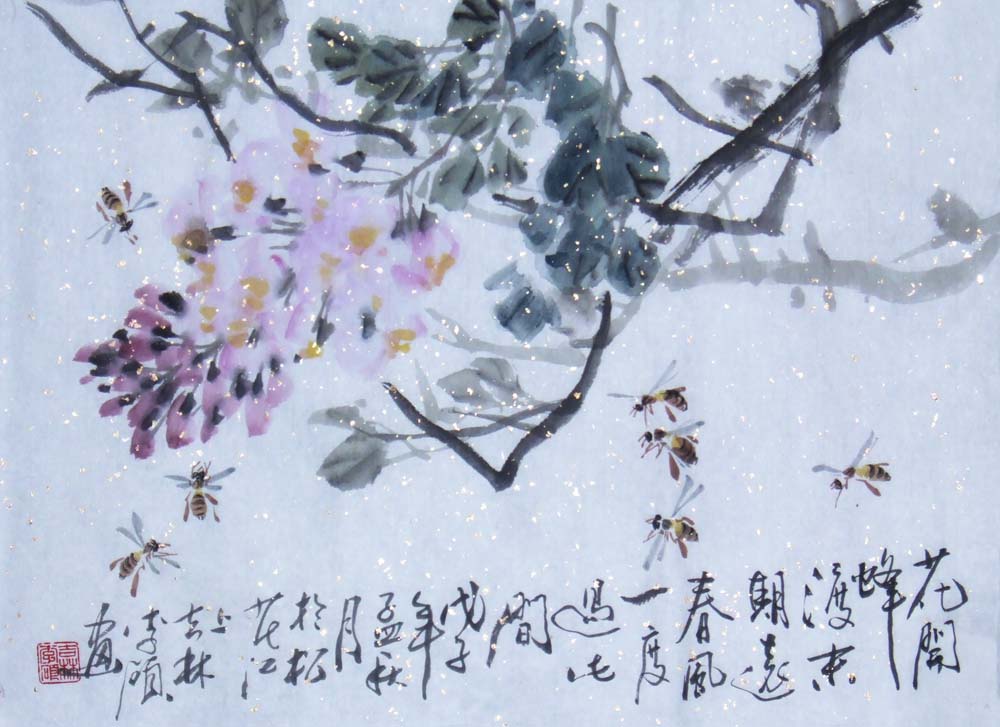 花開
蜂
渡来
期遠
春風
一度
過此
間
戊子
年
孟秋
月
於松
花江
上
吉林
李碩
畫